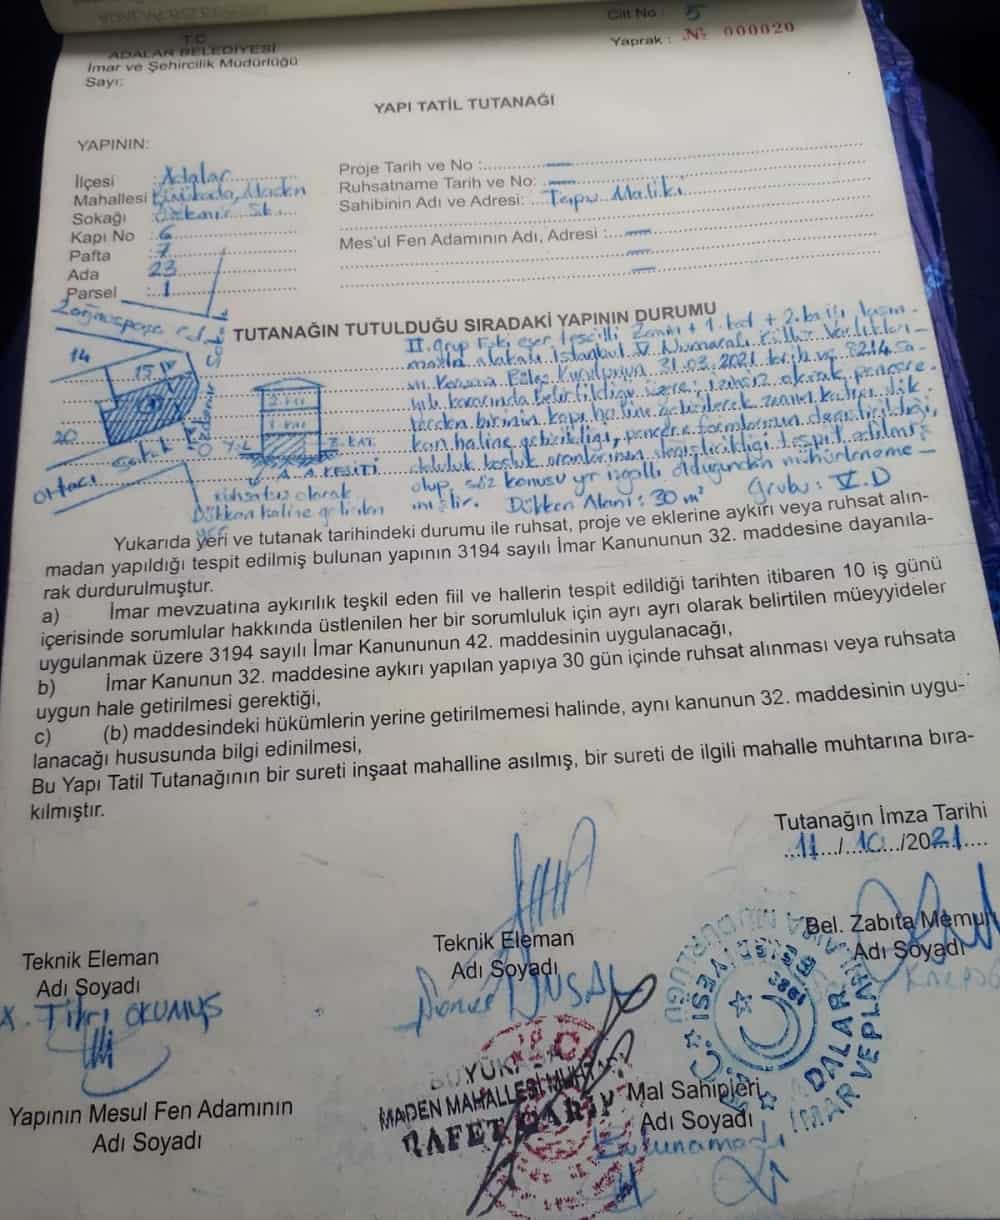 Cilt No : 5
Yaprak : № 000020
T.C
ADALAR BELEDİYESİ
İmar ve Şehircilik Müdürlüğü
Sayı:
YAPI TATİL TUTANAĞI
YAPININ:
İlçesi : Adalar
Mahallesi Büyükada, Maden
Sokağı : Özdemir Sk.
Kapı No : 6
Pafta : 7
Ada : 23
Parsel : 1
Proje Tarih ve No : —
Ruhsatname Tarih ve No: —
Sahibinin Adı ve Adresi: Tapu Maliki
Mes'ul Fen Adamının Adı, Adresi : —
TUTANAĞIN TUTULDUĞU SIRADAKİ YAPININ DURUMU
14
15
20
2. KAT
1. KAT
Z. KAT
A. KESİTİ
Ruhsatsız olarak
Dükkan haline getirilen
yer
II. grup Eski eser tescilli Zemin + 1. kat + 2. katlı taşın-
mazla alakalı İstanbul V Numaralı Kültür Varlıkları-
nı Koruma Bölge Kurulunun 31.03.2021 tarih ve 8214 sa-
yılı kararında belirtildiği üzere; izinsiz olarak pencere-
lerden birinin kapı haline getirilerek zemin katın dük-
kan haline getirildiği, pencere formlarının değiştirildiği,
doluluk boşluk oranlarının değiştirildiği tespit edilmiş
olup, söz konusu yer işgalli olduğundan mühürleneme-
miştir. Dükkan Alanı: 30 m² Grubu: V.D
Yukarıda yeri ve tutanak tarihindeki durumu ile ruhsat, proje ve eklerine aykırı veya ruhsat alın-
madan yapıldığı tespit edilmiş bulunan yapının 3194 sayılı İmar Kanununun 32. maddesine dayanıla-
rak durdurulmuştur.
a) İmar mevzuatına aykırılık teşkil eden fiil ve hallerin tespit edildiği tarihten itibaren 10 iş günü
içerisinde sorumlular hakkında üstlenilen her bir sorumluluk için ayrı ayrı olarak belirtilen müeyyideler
uygulanmak üzere 3194 sayılı İmar Kanununun 42. maddesinin uygulanacağı,
b) İmar Kanunun 32. maddesine aykırı yapılan yapıya 30 gün içinde ruhsat alınması veya ruhsata
uygun hale getirilmesi gerektiği,
c) (b) maddesindeki hükümlerin yerine getirilmemesi halinde, aynı kanunun 32. maddesinin uygu-
lanacağı hususunda bilgi edinilmesi,
Bu Yapı Tatil Tutanağının bir sureti inşaat mahalline asılmış, bir sureti de ilgili mahalle muhtarına bıra-
kılmıştır.
Tutanağın İmza Tarihi
11/10/2021
Teknik Eleman
Adı Soyadı
Fikri OKUMUŞ
Teknik Eleman
Adı Soyadı
Bel. Zabıta Memuru
Adı Soyadı
Yapının Mesul Fen Adamının
Adı Soyadı
BÜYÜKADA
MADEN MAHALLESİ MUHTARI
Mal Sahipleri
Adı Soyadı
Bulunamadı